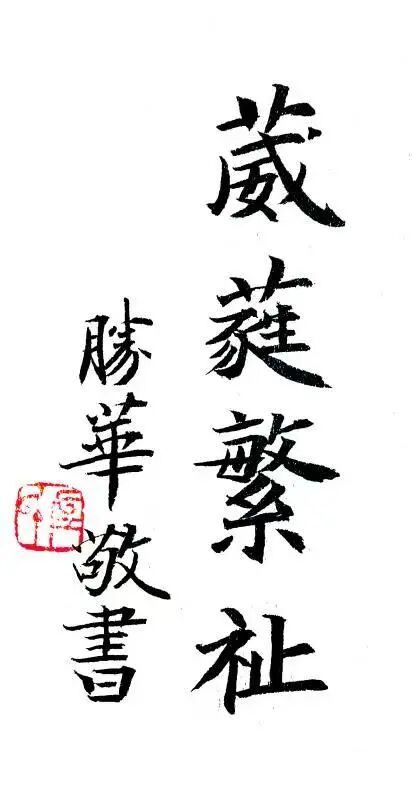 葳蕤繁祉
勝華敬書